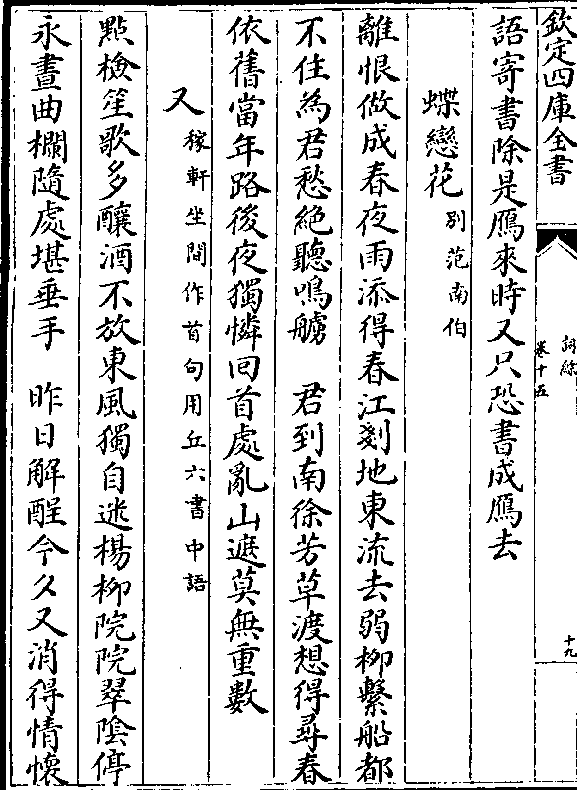 欽定四庫全書
詞綜
卷十五
十九
語寄書除是鴈來時又只恐書成鴈去
蝶戀花 別范南伯
離恨做成春夜雨添得春江剗地東流去弱柳繫船都
不住為君愁絶聽鳴艣 君到南徐芳草渡想得尋春
依舊當年路後夜獨憐回首處亂山遮莫無重數
又 稼軒坐間作首句用丘六書中語
點檢笙歌多釀酒不放東風獨自迷楊柳院院翠陰停
永晝曲欄隨處堪垂手 昨日解酲今久又消得情懷